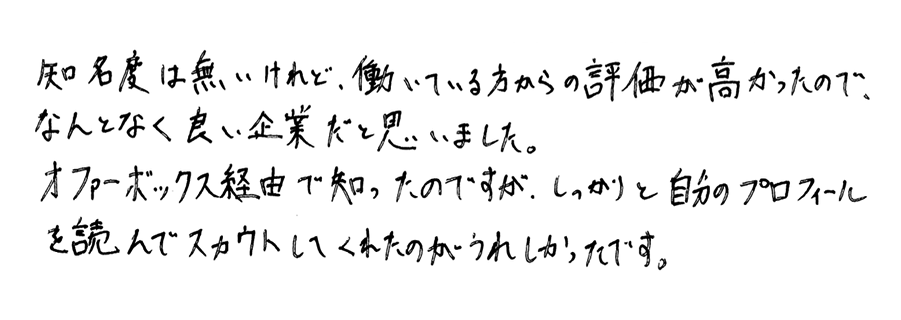 知名度は無いけれど、働いている方からの評価が高かったので、
なんとなく良い企業だと思いました。
オファーボックス経由で知ったのですが、しっかりと自分のプロフィール
を読んでスカウトしてくれたのがうれしかったです。